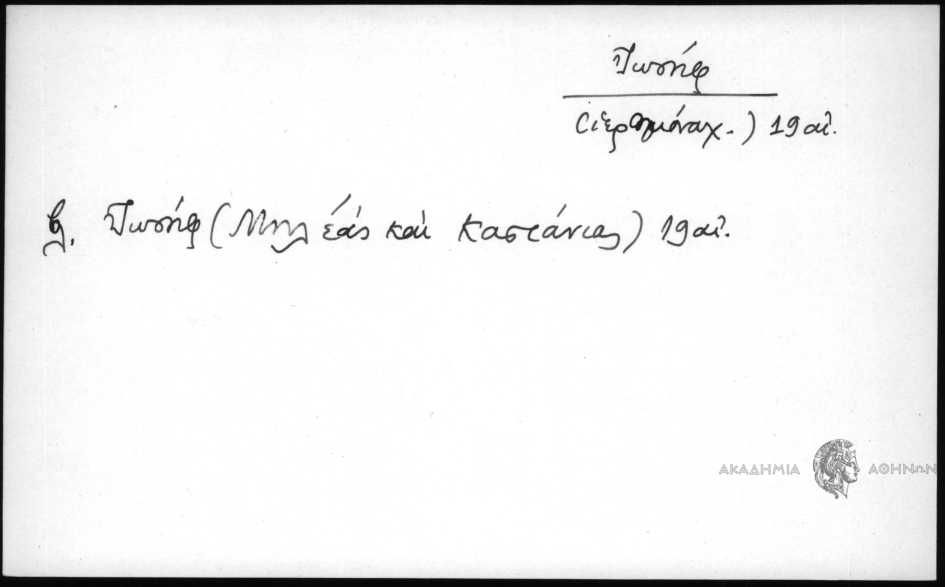 Ἰωσήφ
(ἱερομόναχ.) 19 αἰ.
βλ. Ἰωσήφ (Μηλέας καὶ Καστάνιας) 19 αἰ.
ΑΚΑΔΗΜΙΑ ΑΘΗΝΩΝ